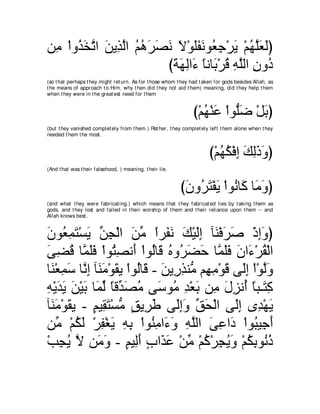 لَعَلَّهُمْ يَرْجِعُونَفَلَوْلاَ نَصَرَهُمُ الَّذِينَ اتَّخَذُواْ مِن
دُونِ اللَّهِ قُرْبَاناً ءَالِهَةَ)
(so that perhaps they might return. As for those whom they had taken for gods besides Allah, as
the means of approach to Him, why then did they not aid them) meaning, did they help them
when they were in the greatest need for them
(بَلْ ضَلُّواْ عَنْهُمْ)
(but they vanished completely from them.) Rather, they completely left them alone when they
needed them the most.
(وَذَلِكَ إِفْكُهُمْ)
(And that was their falsehood, ) meaning, their lie.
(وَمَا كَانُواْ يَفْتَرُونَ)
(and what they were fabricating.) which means that they fabricated lies by taking them as
gods, and they lost and failed in their worship of them and their reliance upon them -- and
Allah knows best.
(وَإِذْ صَرَفْنَآ إِلَيْكَ نَفَراً مِّنَ الْجِنِّ يَسْتَمِعُونَ
الْقُرْءَانَ فَلَمَّا حَضَرُوهُ قَالُواْ أَنصِتُواْ فَلَمَّا قُضِىَ
وَلَّوْاْ إِلَى قَوْمِهِم مُّنذِرِينَ - قَالُواْ يقَوْمَنَآ إِنَّا سَمِعْنَا
كِتَـباً أُنزِلَ مِن بَعْدِ مُوسَى مُصَدِّقاً لِّمَا بَيْنَ يَدَيْهِ
يَهْدِى إِلَى الْحَقِّ وَإِلَى طَرِيقٍ مُّسْتَقِيمٍ - يقَوْمَنَآ
أَجِيبُواْ دَاعِىَ اللَّهِ وَءَامِنُواْ بِهِ يَغْفِرْ لَكُمْ مِّن
ذُنُوبِكُمْ وَيُجِرْكُمْ مِّنْ عَذَابٍ أَلِيمٍ - وَمَن لاَّ يُجِبْ